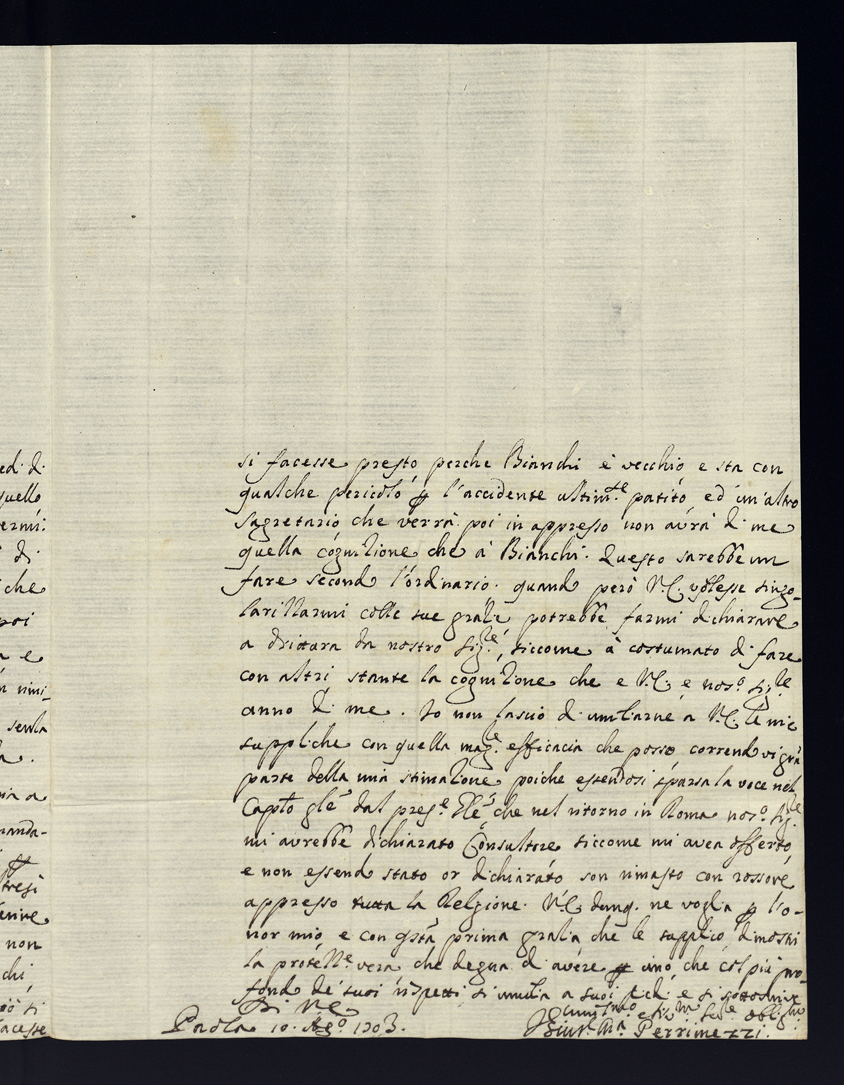 ed. di
quello
ermi:
di
che
poi
a e
n nimi-
senza
a.
mia a
manda-
tresi
enire
non
chi
si
faceste
si facesse presto perche Bianchi è vecchio e sta con
qualche pericolo p l'accidente ultim.te patito ed un'altro
sagretario che verrà poi in appresso non avrà di me
quella cognizione che à Bianchi. Questo sarebbe un
fare second l'ordinario. quando però V.E. volesse singo-
larizzarmi colle sue grazie potrebbe farmi dichiarare
a drittura da nostro Sig.re, siccome à costumato di fare
con altri stante la cognizione che e V.E. e nos.o Sig.re
anno di me. Io non lascio di umiliarne a V.E. le mie
suppliche con quella mag.re efficacia che posso correndovi gra
parte della mia stimazione poiche essendosi sparsa la voce nel
Cap.to gle dal pres.e che nel ritorno in Roma nos.o Sig.re
mi avrebbe dichiarato Consultore siccome mi avea offerto,
e non essend stato or dichiarato son rimasto con rossore
appresso tutta la Religione. V.E. dunq. ne voglia p l'o-
nor mio, e con qsta prima grazia che le supplico, dimostri
la protezz.e vera che degna di avere uno, che col più pro-
fondo de' suoi rispetti, si umilia a suoi piedi e si sottoscrive
Di V.E.
Paola 10. Ag.o 1703.
Perrimezzi.